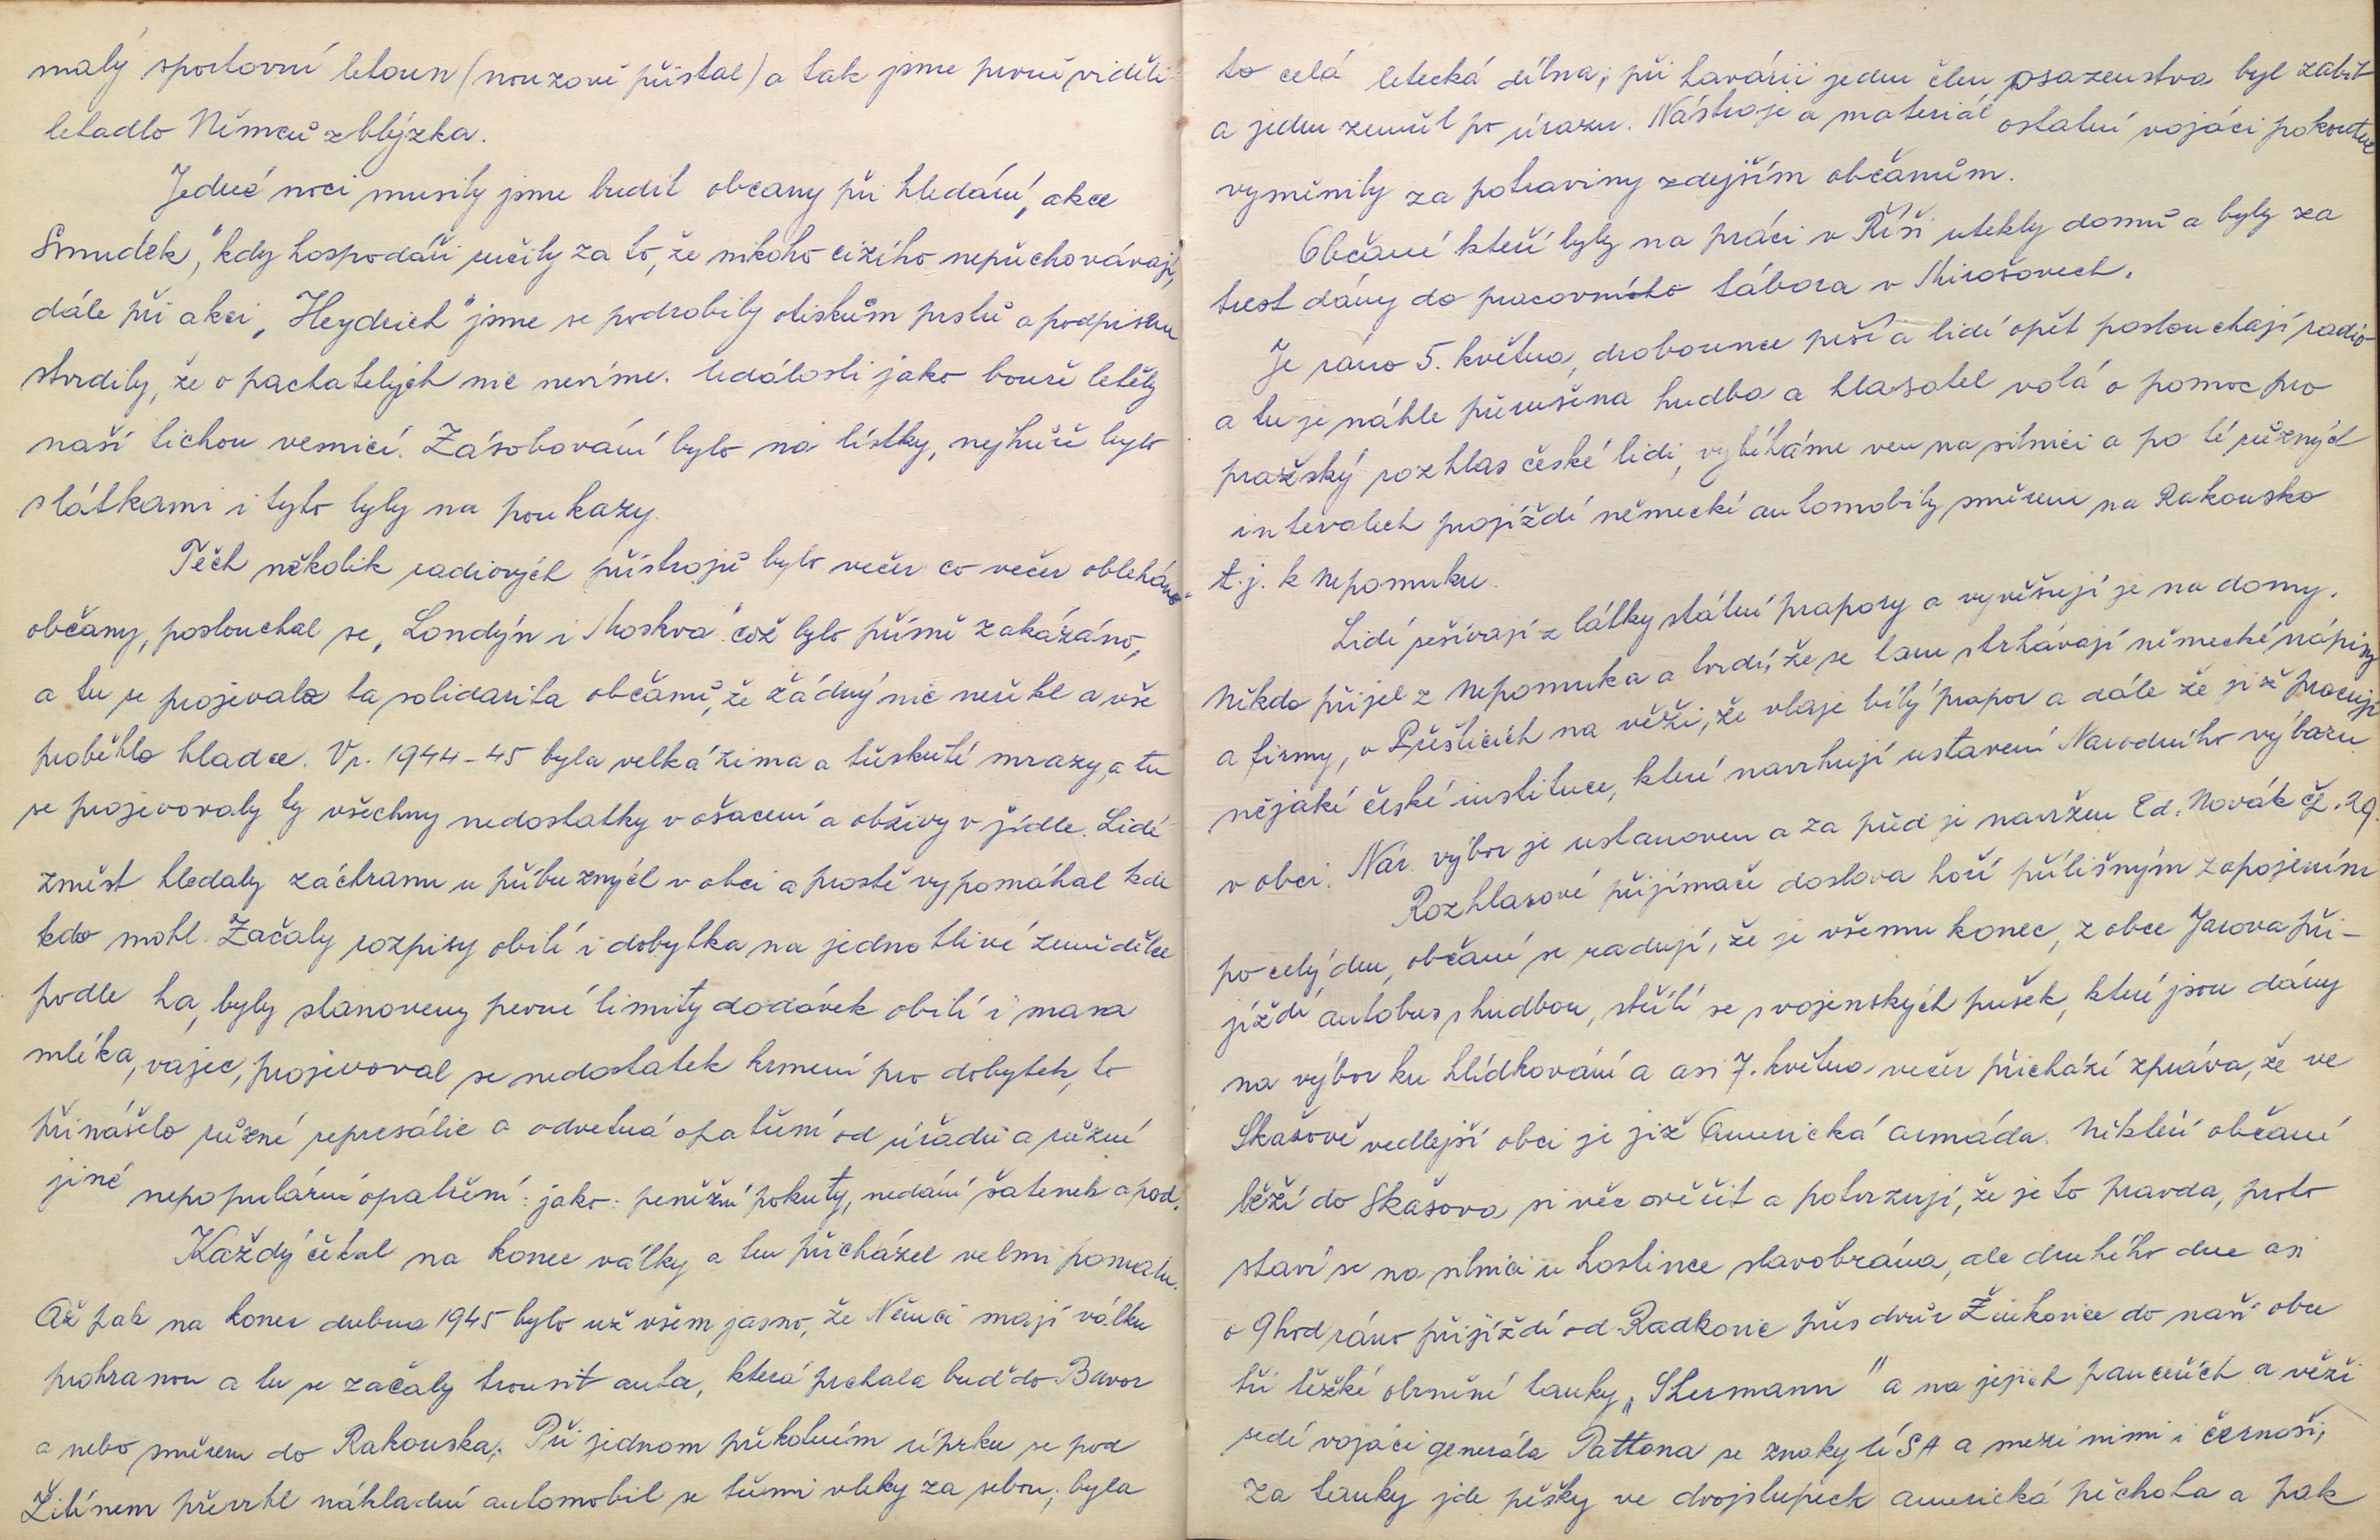 malý sportovní letoun (nouzově přistal) a tak jsme prvně viděli
letadlo Němců zblýzka.
Jedné noci musily jsme budit občany při hledání, akce
Smudek," kdy hospodáři ručily za to, že nikoho cizího nepřichovávají,
dále při akci „Heydrich" jsme se podrobily otiskům prstů a podpisem
stvrdily, že o pachatelých nic nevíme. Události jako bouře letěly
naší tichou vesnicí. Zásobování bylo na lístky, nejhůře bylo
s látkami i tyto byly na poukazy.
Těch několik radiových přístrojů bylo večer co večer obleháno
občany, poslouchal se „Londýn i Moskva" což bylo přísně zakázáno,
a tu se projevala ta solidarita občanů, že žádný nic neřekl a vše
proběhlo hladce. V r. 1944-45 byla velká zima a třeskuté mrazy, a tu
se projevovaly ty všechny nedostatky v ošacení a obživy v jídle. Lidé
z měst hledaly záchranu u příbuzných v obci a prostě vypomáhal kde
kdo mohl. Začaly rozpisy obilí i dobytka na jednotlivé zemědělce
podle ha, byly stanoveny pevné limity dodávek obilí i masa
mléka, vajec, projevoval se nedostatek krmení pro dobytek, to
přinášelo různé represálie a odvetná opatření od úřadů a různé
jiné nepopulární opatření: jako: peněžní pokuty, nedání šatenek a pod.
Každý čekal na konec války a ten přicházel velmi pomalu.
Až pak na konec dubna 1945 bylo už všem jasno, že Němci mají válku
prohranou a tu se začaly trousit auta, která prchala buď do Bavor
a nebo směrem do Rakouska. Při jednom překotném úprku se pod
Žitínem převrhl nákladní automobil se třemi vleky za sebou; byla
to celá letecká dílna; při havárii jeden člen osazenstva byl zabit
a jeden zemřel po úrazu. Nástroje a materiál ostatní vojáci pokoutně
vyměnily za potraviny zdejším občanům.
Občané kteří byly na práci v Říši utekly domů a byly za
trest dány do pracovního tábora v Mirošovech.
Je ráno 5. května, drobounce prší a lidé opět poslouchají radio
a tu je náhle přerušena hudba a hlasatel volá o pomoc pro
pražský rozhlas české lidi, vybíháme ven na silnici a po té různých
intevalech projíždí německé automobily směrem na Rakousko
t.j. k Nepomuku.
Lidé sešívají z látky státní prapory a vyvěšují je na domy.
Někdo přijel z Nepomuka a tvrdí, že se tam strhávají německé nápisy
a firmy, v Přešticích na věži, že vlaje bílý prapor a dále že již pracují
nějaké české instituce, které navrhují ustavení Narodního výboru
v obci. Nár. výbor je ustanoven a za před je navržen Ed. Novák čp. 29.
Rozhlasové přijímače doslova hoří přílišným zapojením
po celý den, občané se radují, že je všemu konec, z obce Jarova při-
jíždí autobus s hudbou, střílí se z vojenských pušek, které jsou dány
na výbor ku hlídkování a asi 7. května večer přichází zpráva, že ve
Skašově vedlejší obci je již Americká armáda. Někteří občané
běží do Skašova si věc ověřit a potvrzují, že je to pravda, proto
staví se na silnici u hostince slavobrána, ale druhého dne asi
o 9 hod ráno přijíždí od Radkovic přes dvůr Žinkovice do naší obce
tři těžké obrněné tanky „Shermann" a na jejich pancéřích a věži
sedí vojáci generála Pattona se znaky USA a mezi nimi i černoši;
Za tanky jde pěšky ve dvojstupech americká pěchota a pak